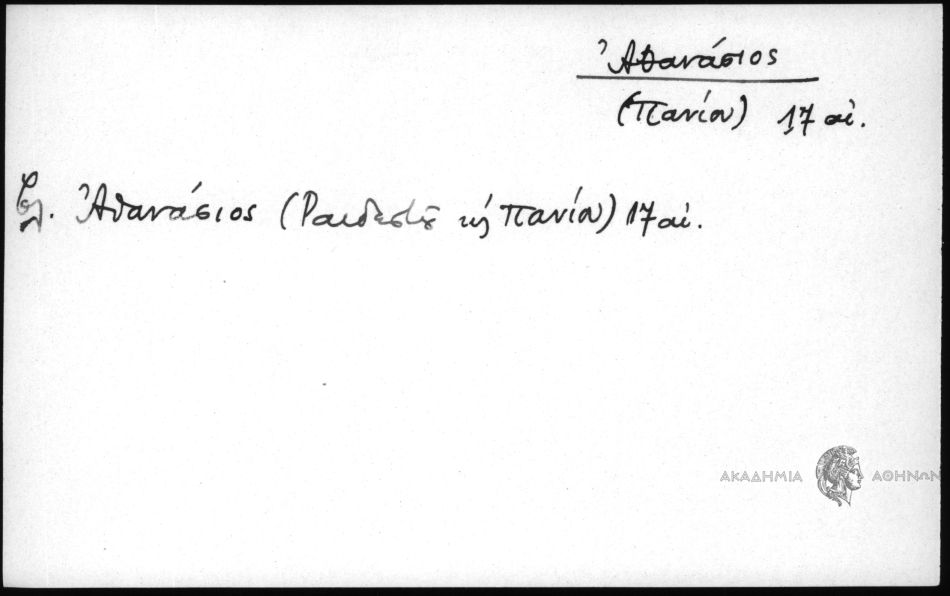 Ἀθανάσιος
(Πανίου) 17 αἰ.
βλ. Ἀθανάσιος (Ραιδεστοῦ κ Πανίου) 17 αἰ.
ΑΚΑΔΗΜΙΑ ΑΘΗΝΩΝ